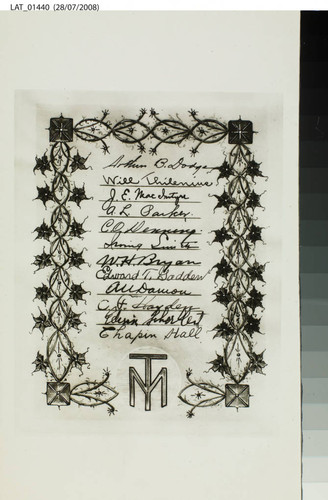 LAT_01440 (28/07/2008)
Arthur C. Dodge
Will Thilemine
J. E. MacIntyre
A. L. Parker
C. O. Denning
Irving Smith
W. H. Bryan
Edward T. Dadden
A. U. Dawson
C. F. Hayden
Chapin Hall
TM